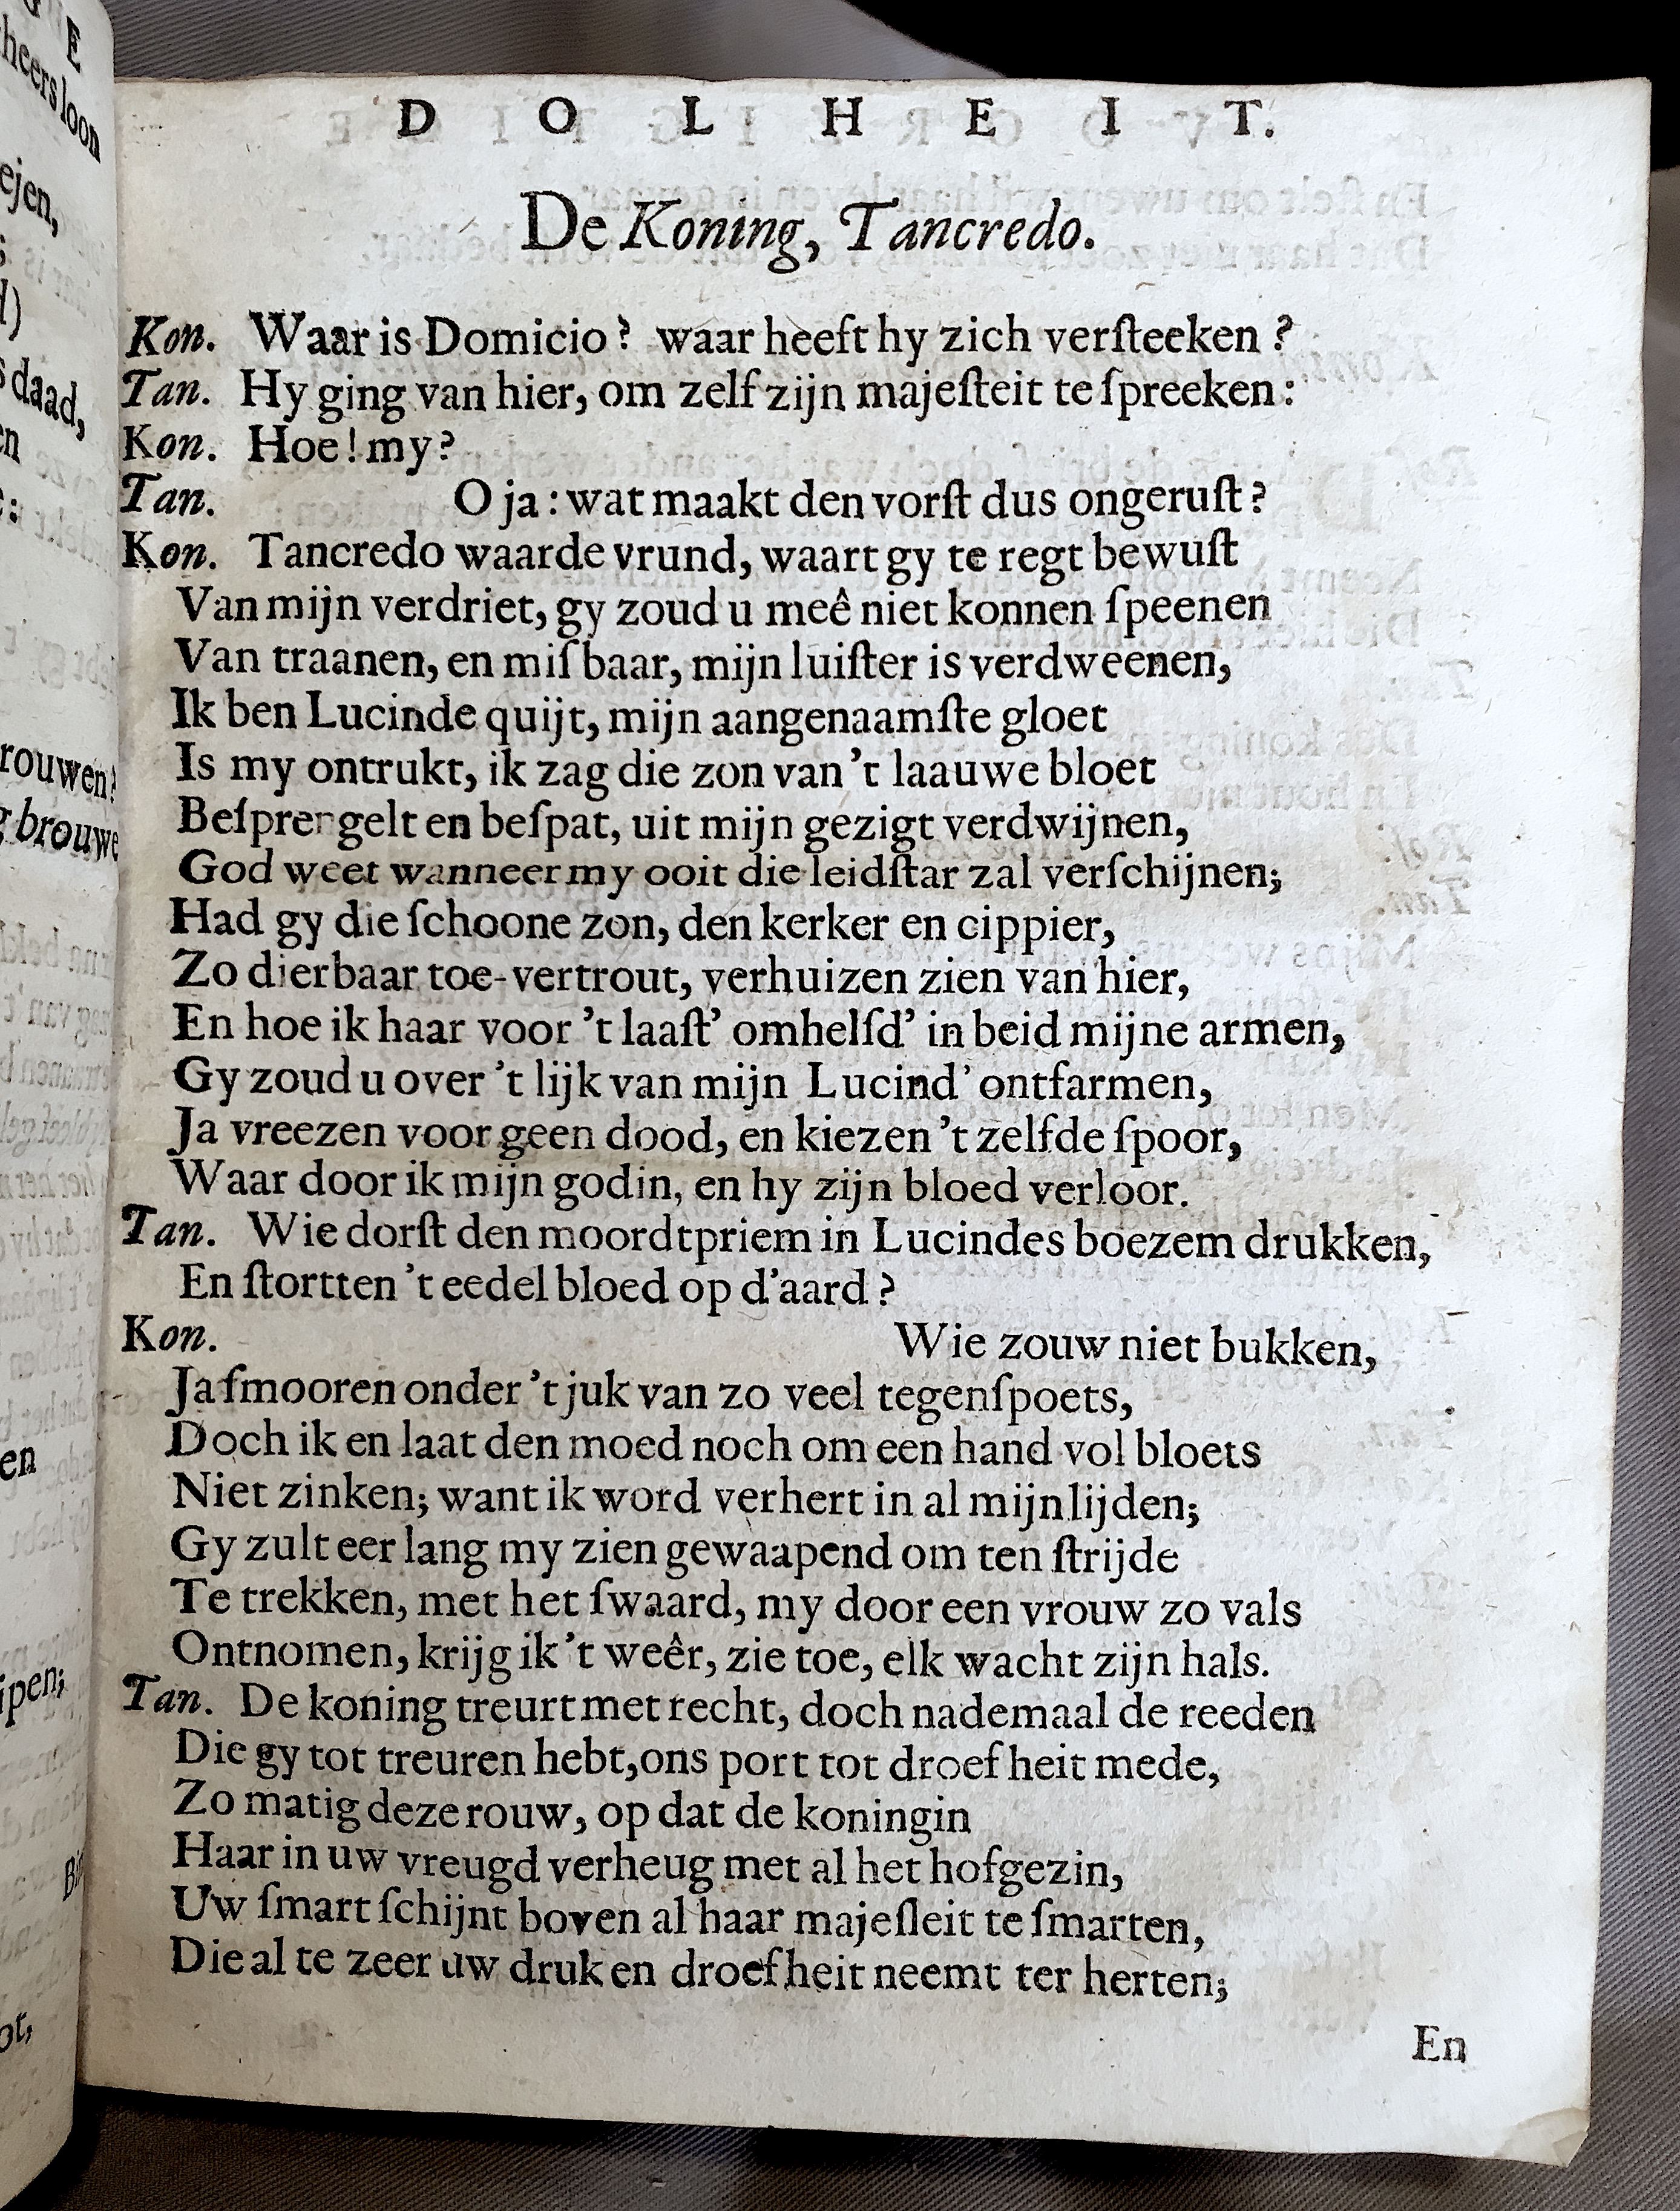 D O L H E I T.
De Koning, Tancredo.
Kon. Waar is Domicio? waar heeft hy zich verſteeken?
Tan. Hy ging van hier, om zelf zijn majeſteit te ſpreeken:
Kon. Hoe! my?
Tan. O ja: wat maakt den vorſt dus ongeruſt?
Kon. Tancredo waarde vrund, waart gy te regt bewuſt
Van mijn verdriet, gy zoud u meê niet konnen ſpeenen
Van traanen, en miſbaar, mijn luiſter is verdweenen,
Ik ben Lucinde quijt, mijn aangenaamſte gloet
Is my ontrukt, ik zag die zon van 't laauwe bloet
Beſprengelt en beſpat, uit mijn gezigt verdwijnen,
God weet wanneer my ooit die leidſtar zal verſchijnen;
Had gy die ſchoone zon, den kerker en cippier,
Zo dierbaar toe-vertrout, verhuizen zien van hier,
En hoe ik haar voor 't laaſt' omhelſd' in beid mijne armen,
Gy zoud u over 't lijk van mijn Lucind' ontfarmen,
Ja vreezen voor geen dood, en kiezen 't zelfde ſpoor,
Waar door ik mijn godin, en hy zijn bloed verloor.
Tan. Wie dorſt den moordtpriem in Lucindes boezem drukken,
En ſtortten 't eedel bloed op d'aard?
Kon. Wie zouw niet bukken,
Ja ſmooren onder 't juk van zo veel tegenſpoets,
Doch ik en laat den moed noch om een hand vol bloets
Niet zinken; want ik word verhert in al mijn lijden;
Gy zult eer lang my zien gewaapend om ten ſtrijde
Te trekken, met het ſwaard, my door een vrouw zo vals
Ontnomen, krijg ik 't weêr, zie toe, elk wacht zijn hals.
Tan. De koning treurt met recht, doch nademaal de reeden
Die gy tot treuren hebt, ons port tot droefheit mede,
Zo matig deze rouw, op dat de koningin
Haar in uw vreugd verheug met al het hofgezin,
Uw ſmart ſchijnt boven al haar majeſteit te ſmarten,
Die al te zeer uw druk en droefheit neemt ter herten;
En